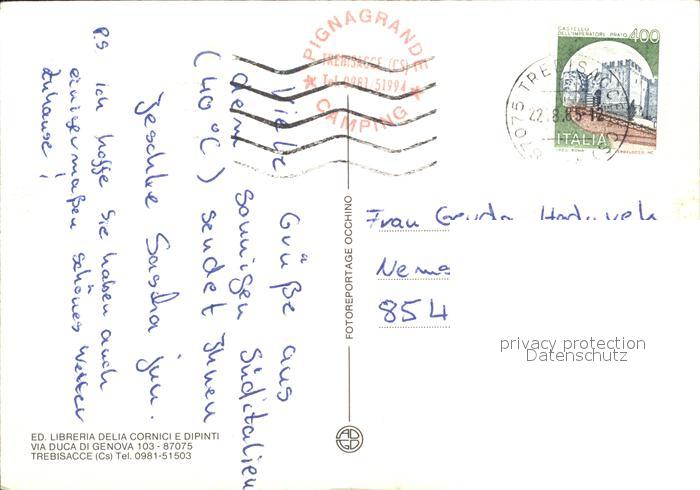 Viele Grüße aus
dem sonnigen Süditalien
(40°C) sendet Ihnen
Jeschke Sascha jun.
P.S ich hoffe Sie haben auch
einigermaßen schönes Wetter
zuhause!
PIGNAGRANDE
TREBISACCE (CS)
Tel. 0981 51994
CAMPING
CASTELLO
DELL'IMPERATORE · PRATO
400
ITALIA
87075 TREBISACCE (CS)
22.8.85-12
Frau
854
FOTOREPORTAGE OCCHINO
privacy protection
Datenschutz
ED. LIBRERIA DELIA CORNICI E DIPINTI
VIA DUCA DI GENOVA 103 - 87075
TREBISACCE (Cs) Tel. 0981-51503